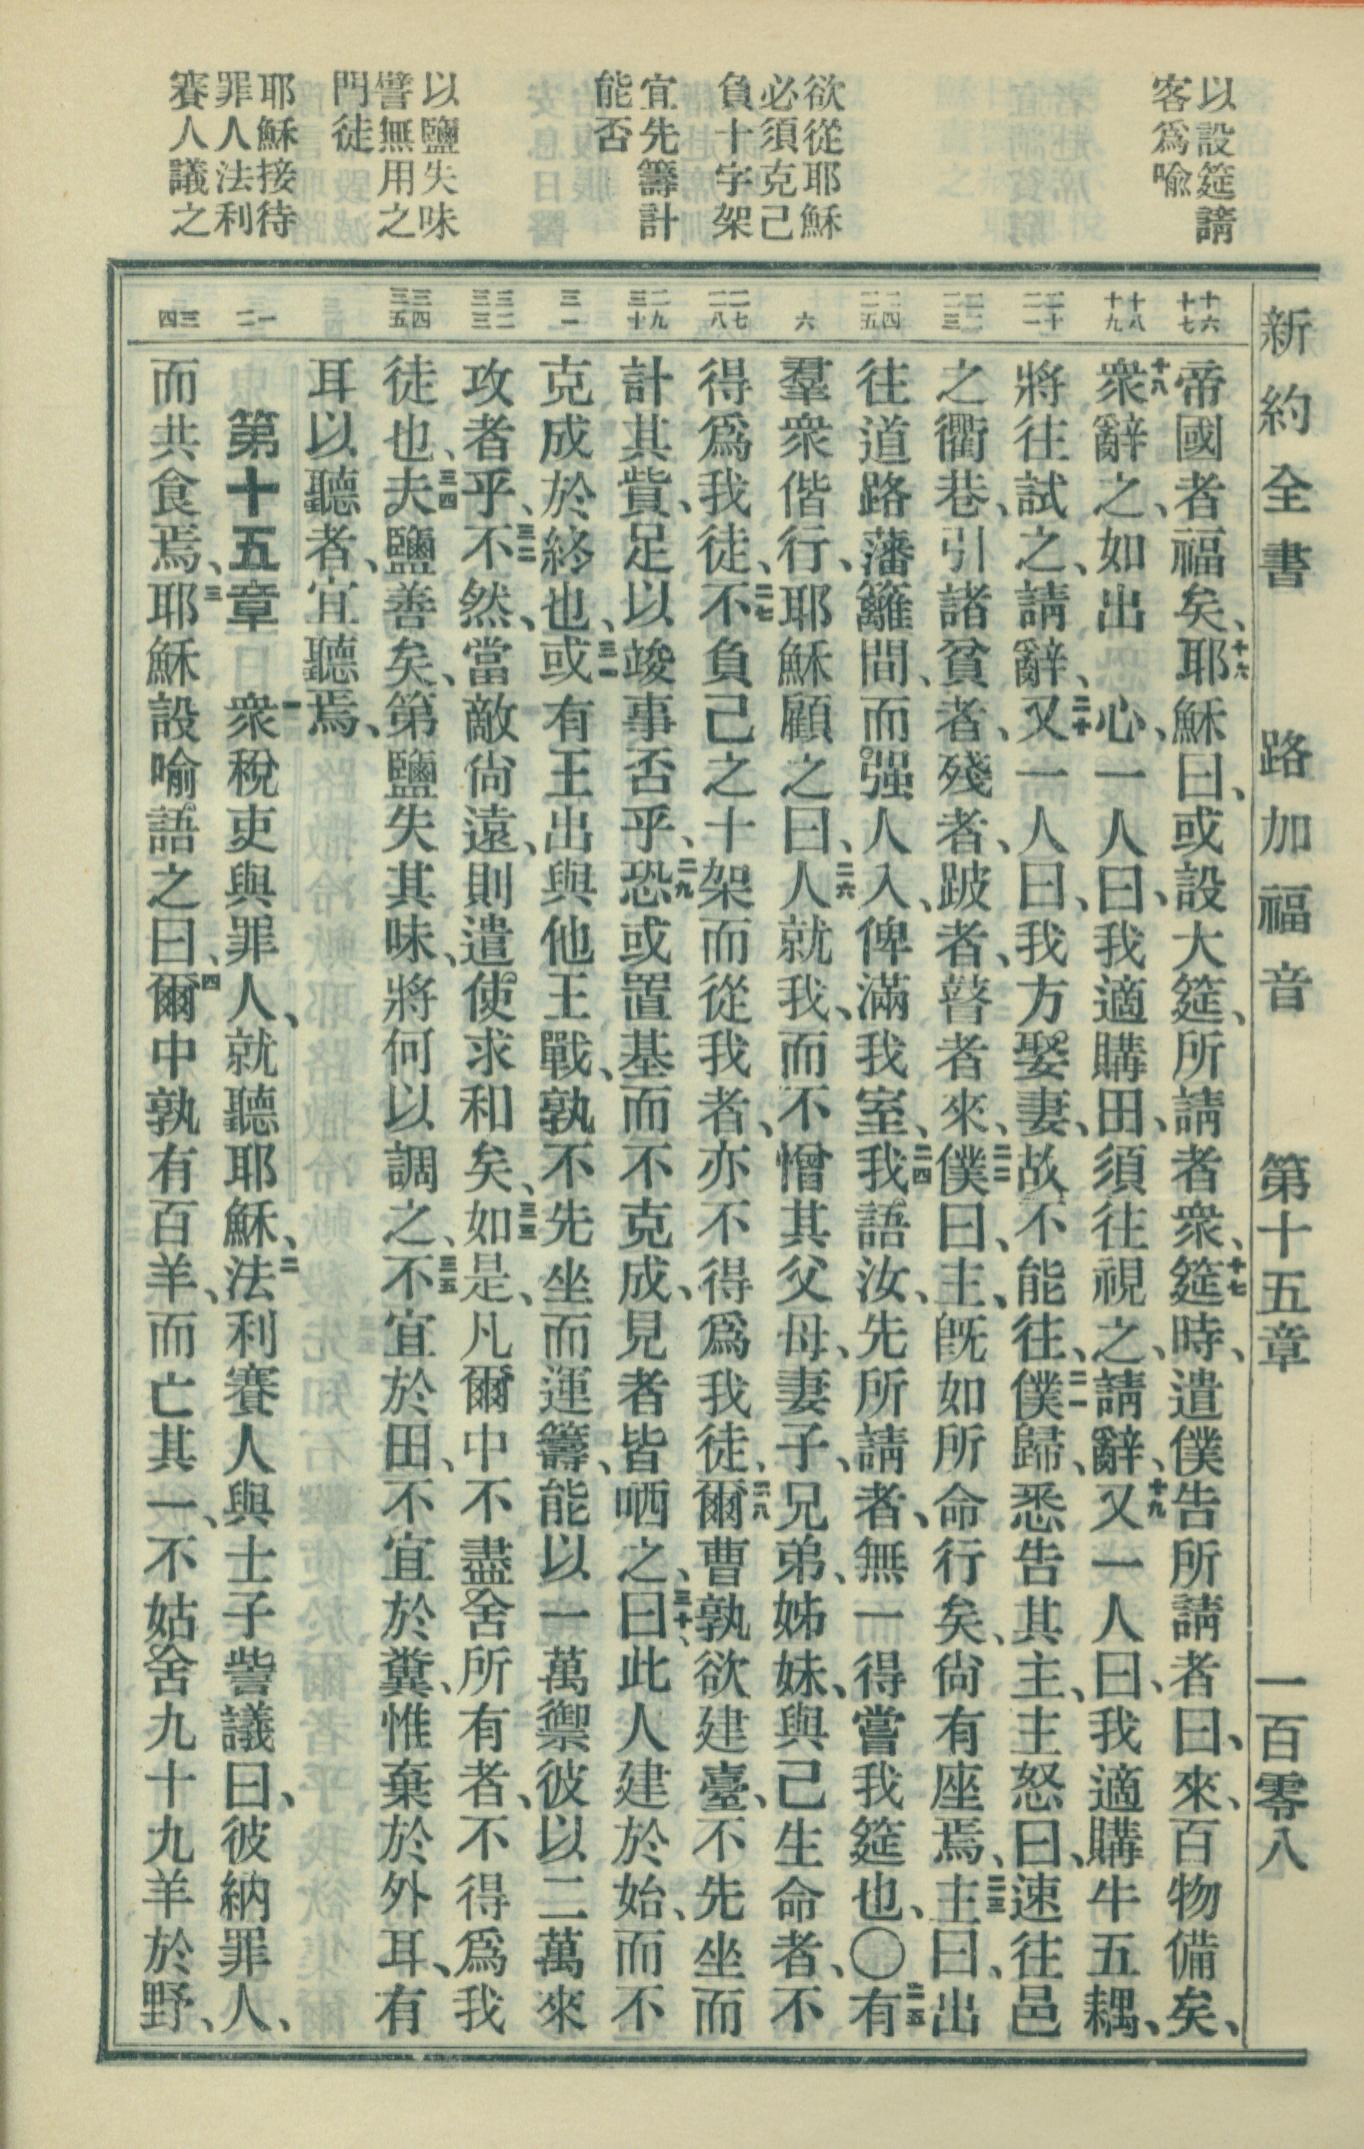 新約全書 路加福音 第十五章 一百零八
以設筵請
客爲喻
欲從耶穌
必須克己
負十字架
宜先籌計
能否
以鹽失味
譬無用之
門徒
耶穌接待
罪人法利
賽人議之
十六 十七 十八 十九 二十 二一 二二 二三 二四 二五 六 二七 二八 二九 三十 三一 三二 三三 三四 三五 一 二 三 四
帝國者福矣、十六耶穌曰、或設大筵、所請者衆、十七筵時、遣僕告所請者曰、來、百物備矣、
十八衆辭之、如出一心、一人曰、我適購田、須往視之、請辭、十九又一人曰、我適購牛五耦、
將往試之、請辭、二十又一人曰、我方娶妻、故不能往、二一僕歸、悉告其主、主怒曰、速往邑
之衢巷、引諸貧者、殘者、跛者、瞽者來、二二僕曰、主、旣如所命行矣、尙有座焉、二三主曰、出
往道路藩籬間、而强人入、俾滿我室、二四我語汝、先所請者、無一得嘗我筵也、〇二五有
羣衆偕行、耶穌顧之曰、二六人就我、而不憎其父母、妻子、兄弟、姊妹、與己生命者、不
得爲我徒、二七不負己之十架而從我者、亦不得爲我徒、二八爾曹孰欲建臺、不先坐而
計其貲、足以竣事否乎、二九恐或置基而不克成、見者皆哂之、三十曰、此人建於始、而不
克成於終也、三一或有王出與他王戰、孰不先坐而運籌、能以一萬禦彼以二萬來
攻者乎、三二不然、當敵尙遠、則遣使求和矣、三三如是、凡爾中不盡舍所有者、不得爲我
徒也、三四夫鹽善矣、第鹽失其味、將何以調之、三五不宜於田、不宜於糞、惟棄於外耳、有
耳以聽者、宜聽焉、
第十五章 一衆稅吏與罪人、就聽耶穌、二法利賽人與士子訾議曰、彼納罪人、
而共食焉、三耶穌設喻語之曰、四爾中孰有百羊、而亡其一、不姑舍九十九羊於野、